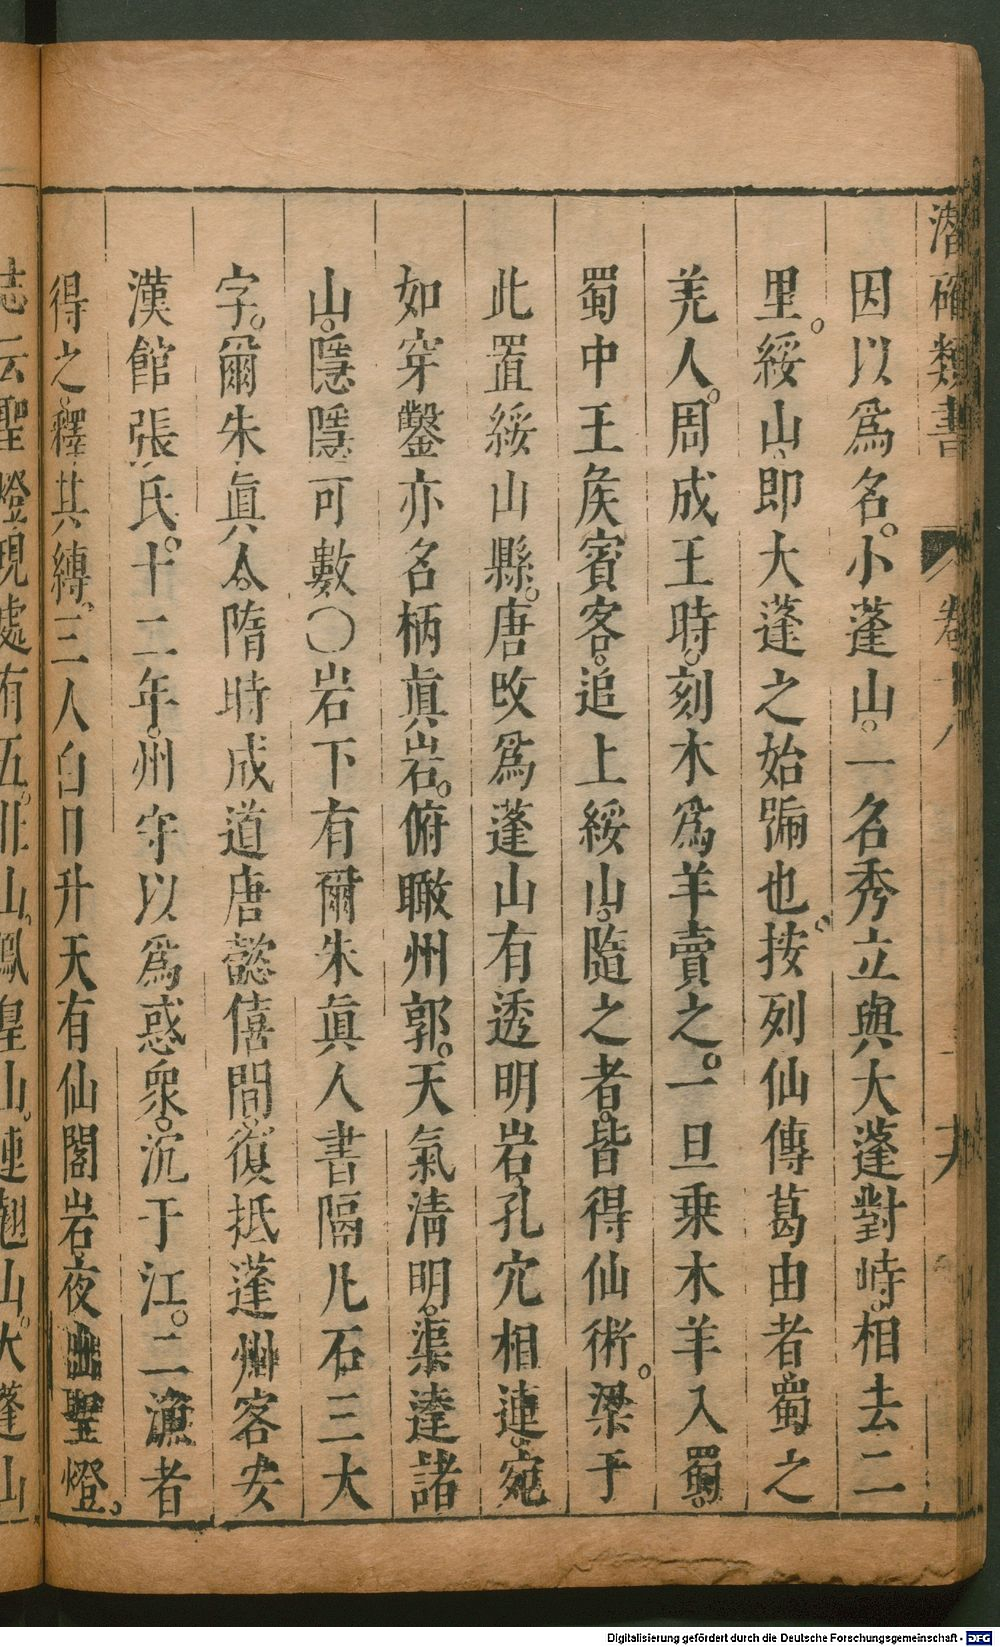 潛確類書 卷十八 十九
因以爲名。小蓬山。一名秀立與大蓬對峙。相去二
里。綏山、即大蓬之始號也。按列仙傳葛由者蜀之
羌人。周成王時。刻木爲羊賣之。一旦乗木羊入蜀。
蜀中王矦賓客。追上綏山。隨之者。皆得仙術。梁于
此置綏山縣。唐攺爲蓬山有透明岩、孔穴相連。宛
如穿鑿亦名柄眞岩。俯瞰州郭。天氣清明。渠達諸
山。隱隱可數〇岩下有爾朱眞人書隔凡石三大
字。爾朱眞人。隋時成道唐懿僖間。復抵蓬州客安
漢館張氏。十二年。州守以爲惑衆。沉于江。二漁者
得之。釋其縛。三人白日升天有仙閣岩夜出聖燈。
誌云聖燈現處有五。 山。鳳凰山。連翹山。大蓬山
Digitalisierung gefördert durch die Deutsche Forschungsgemeinschaft - DFG